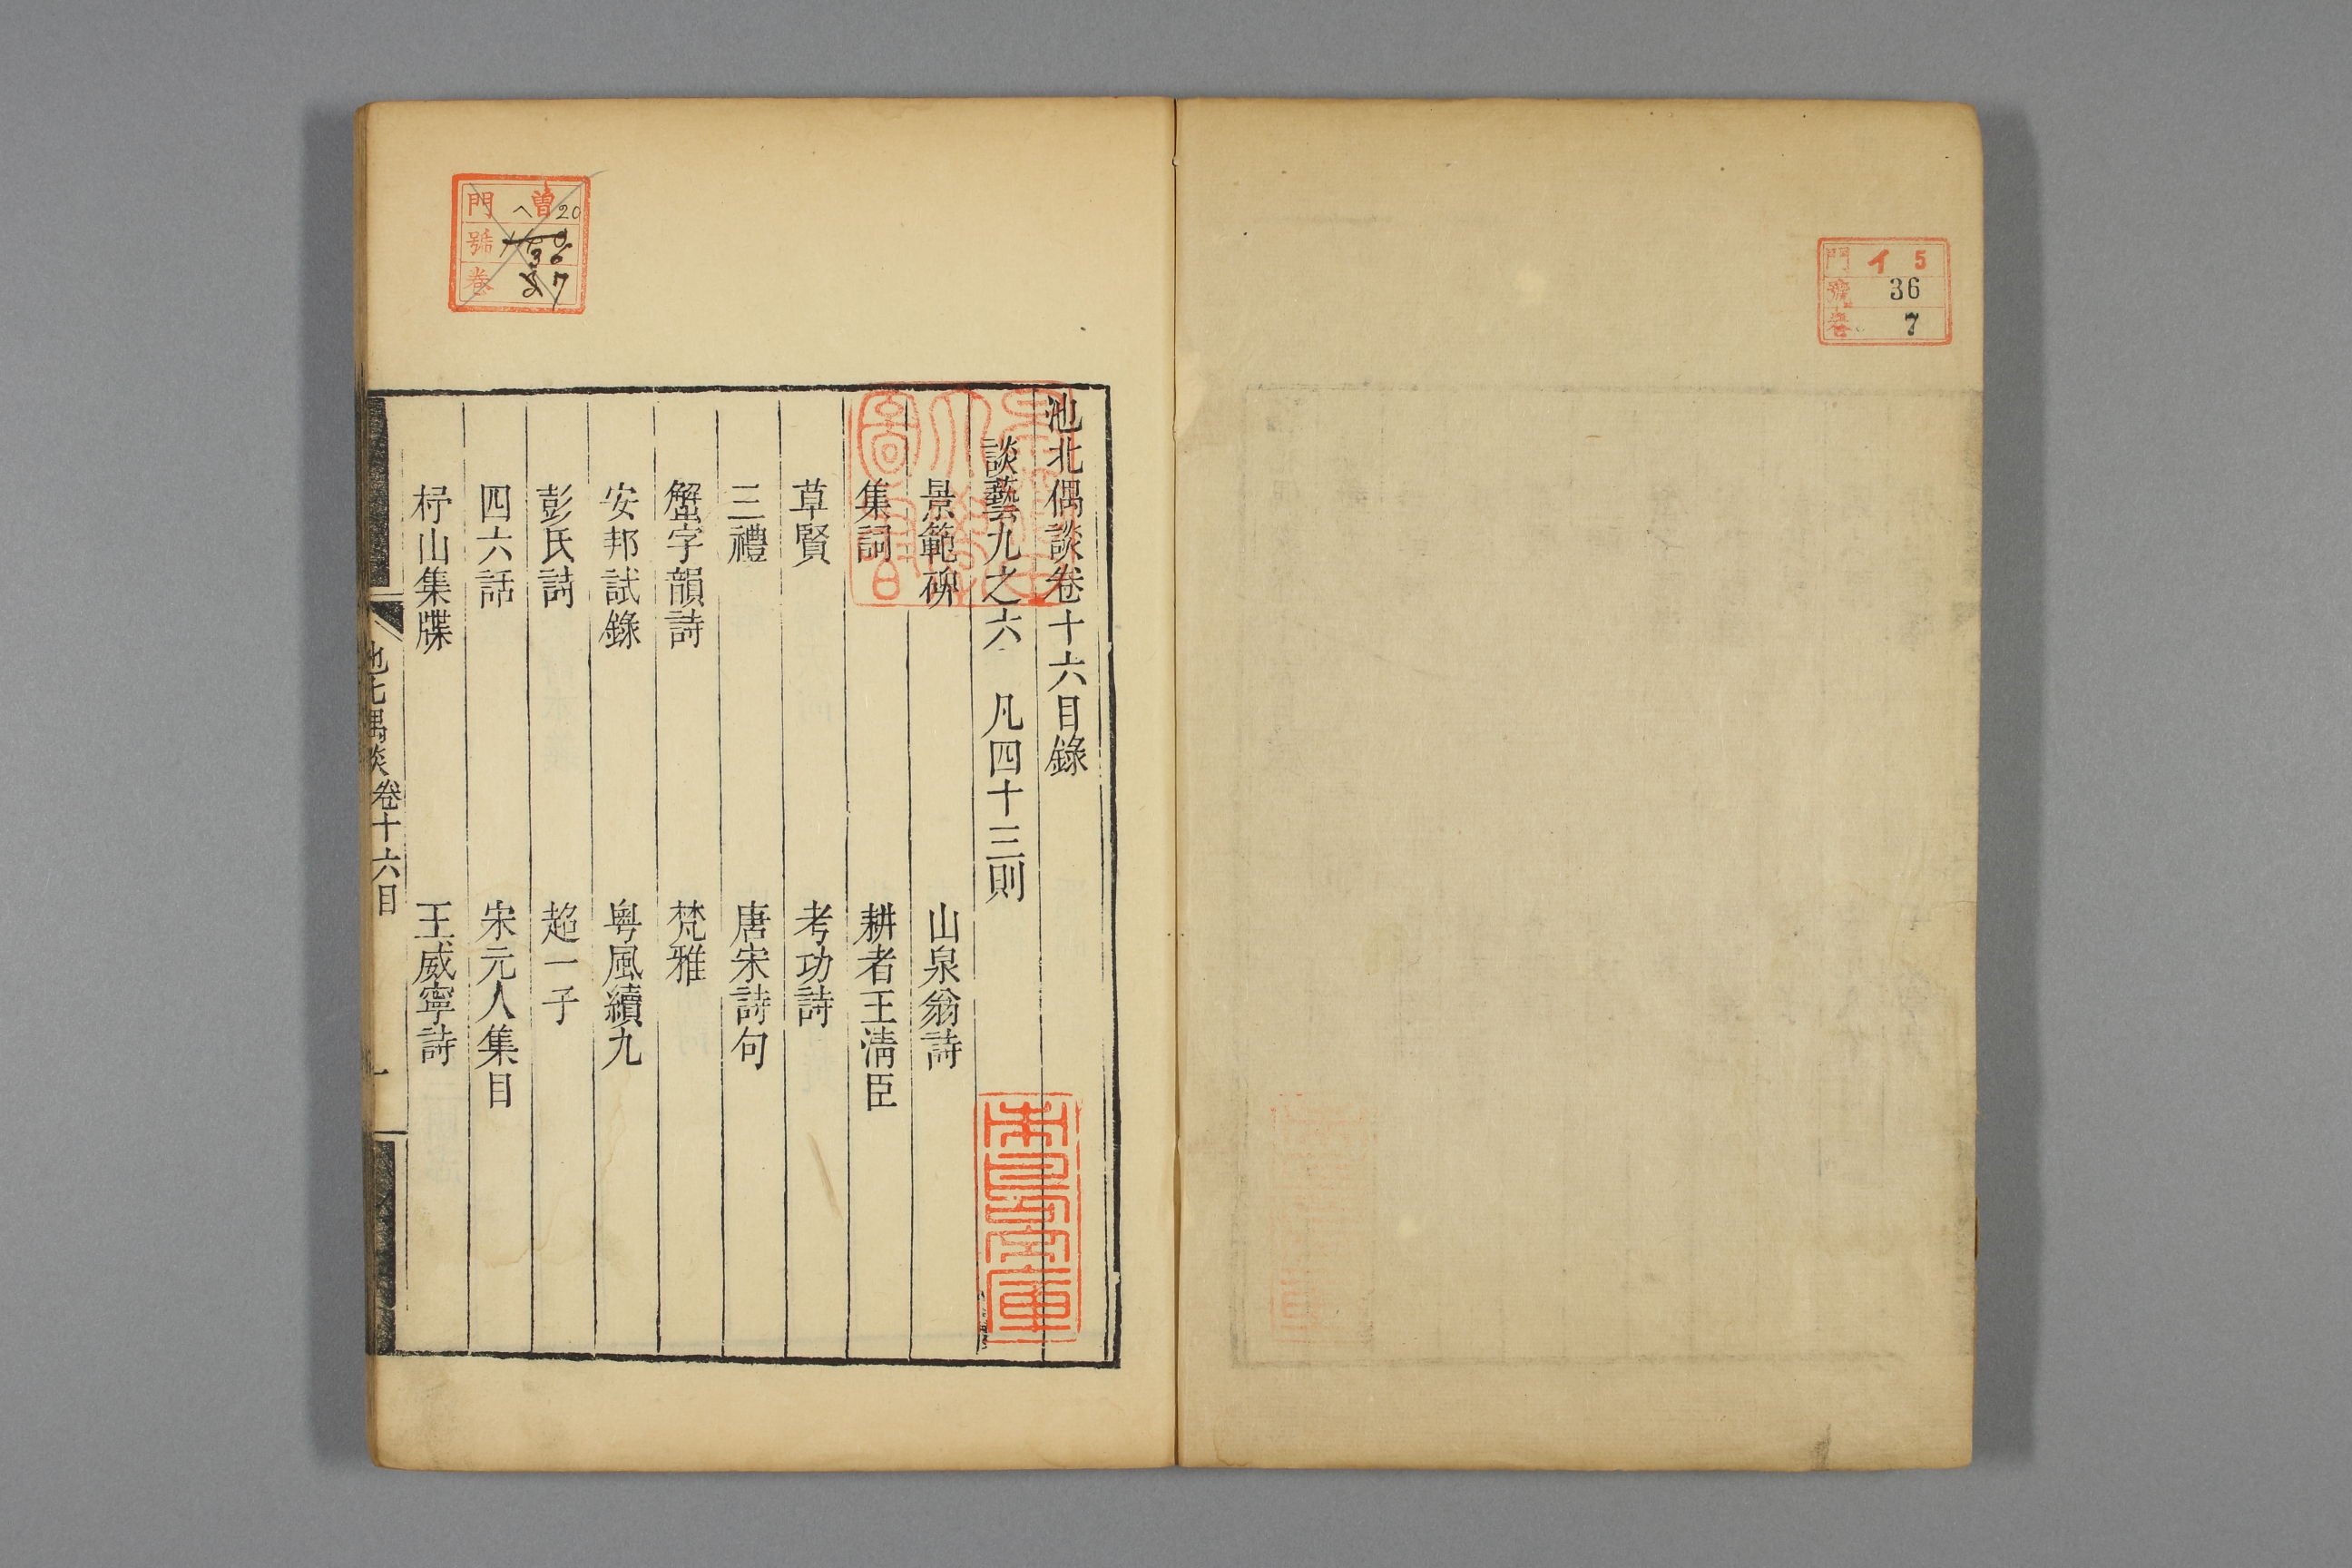 門 イ 5
號 36
卷 7
門 曽 ヘ 20
號 36
卷 7
池北偶談卷十六目錄
談藝九之六 凡四十三則
景範碑 山泉翁詩
集詞 耕者王淸臣
草賢 考功詩
三禮 唐宋詩句
蟹字韻詩 梵雅
安邦試錄 粤風續九
彭氏詩 趙一子
四六話 宋元人集目
杼山集牒 王威寧詩
池北偶談 卷十六目 一